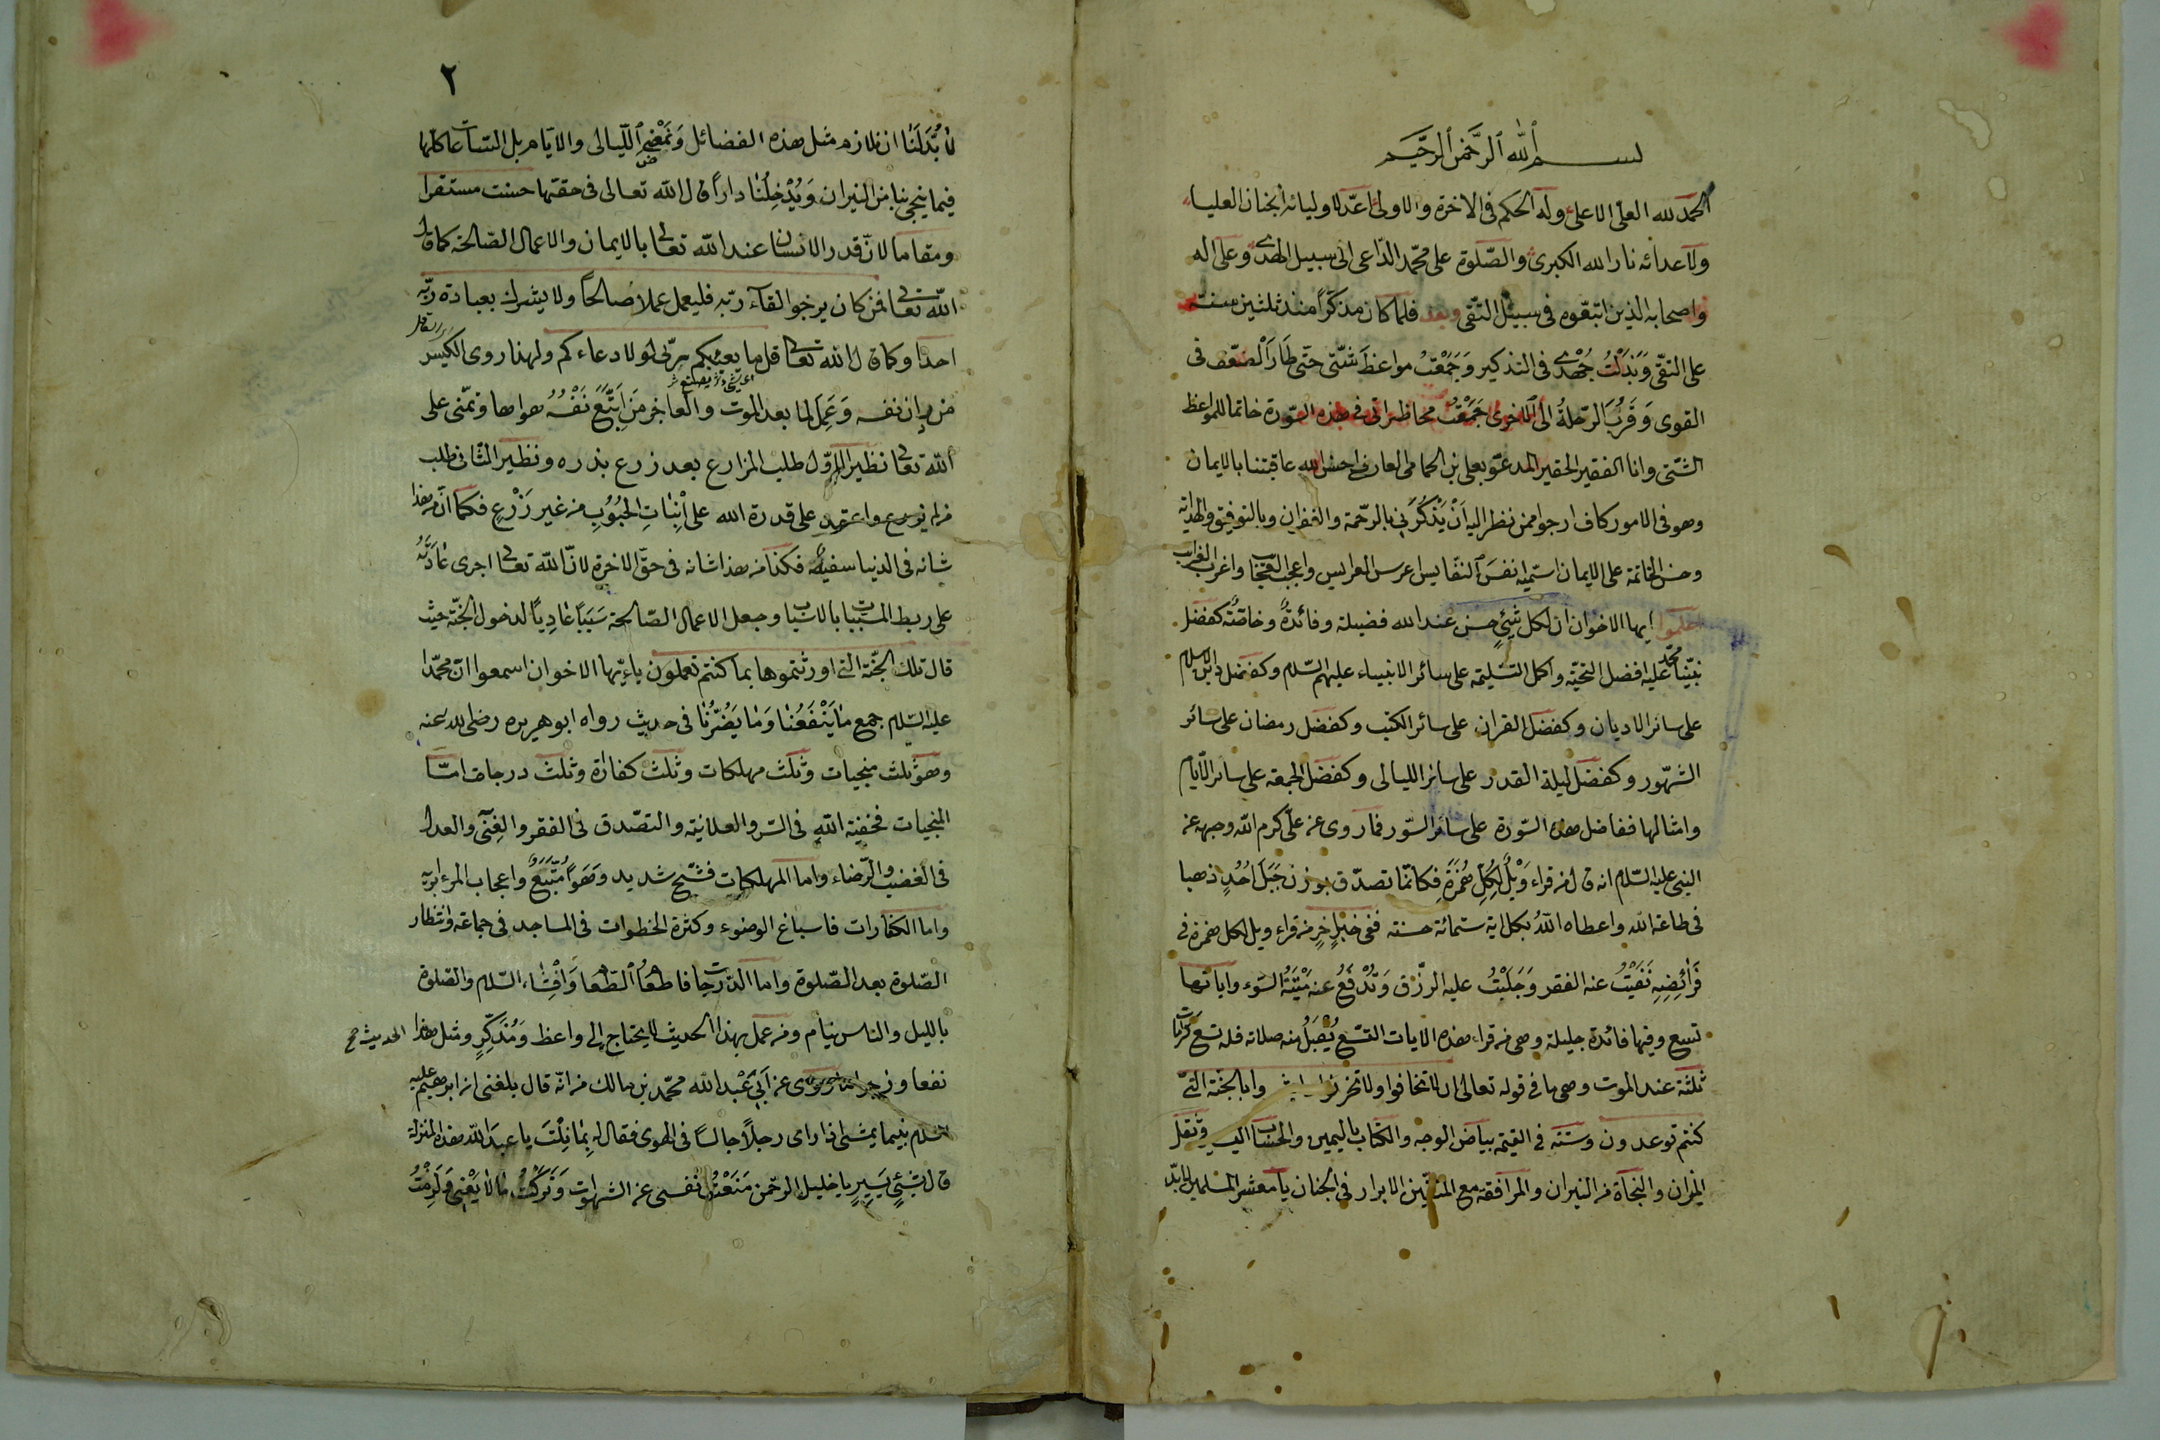 بسم الله الرحمن الرحيم
الحمد لله العلى الاعلى وله الحكم فى الاخرة والاولى اعد لاوليائه الجنان العليا
ولاعدائه نار الله الكبرى والصلوة على محمد الداعى الى سبيل الهدى وعلى اله
واصحابه الذين اتبعوه فى سبيل التقى وبعد فلما كان مذكرا منذ ثلثين سنة
على التقى وَبَذَلْتُ جُهْدى فى التذكير وَجَمَعْتُ مواعظ شتى حتى طَارَ الضعف فى
القوى وَقَرُبَ الرحلةُ الى الاخرى جَمَعْتُ محاظراتى فى هذه السورة خاتما للمواعظ
الشتى وانا الفقير الحقير المدعو بعلى بن الحمامى العارفى احسن الله عاقبتنا بالايمان
وهو فى الامور كاف ارجو ممن نظر اليه اَنْ يَذْكُرَنِى بالرحمة والغفران وبالتوفيق والهداية
وحسن الخاتمة على الايمان اسميه انفسَ النفايس اعرس العرايس واعجب العجائب واغرب الغرائب
اعلموا ايها الاخوان ان لكل شيئ حسن عند الله فضيلة وفائدةً وخاصّةً كفضل
نبينا محمد عليه افضل التحية واكمل التسليمة على سائر الانبياء عليهم السلام وكفضل دين الاسلام
على سائر الاديان وكفضل القران على سائر الكتب وكفضل رمضان على سائر
الشهور وكفضل ليلة القدر على سائر الليالى وكفضل الجمعة على سائر الايام
وامثالها ففاضل هذه السورة على سائر السور فما روى عن على كرم الله وجهه عن
النبى عليه السلام انه قال من قراء وَيْلٌ لِكُلِّ هُمَزَةٍ فكانما تصدق بوزن جَبَلَ اُحُدٍ ذهبا
فى طاعة الله واعطاه اللهُ بكل اية ستمائة حسنة ففى خبرٍ اخرٍ من قراء ويل لكل همزة فى
فَرَائِضِهِ نَفَيْتُ عنه الفقر وَجَلَبْتُ عليه الرزق وَتُدْفَعُ عنه مَيْتَةُ السوء واياتها
تسع وفيها فائدة جليلة وهى من قراء هذه الايات التسع يُقْبَلُ منه صلاته فله تسع كرامات
ثلثة عند الموت وهى ما فى قوله تعالى ان لا تخافوا ولا تحزنوا وابشروا بالجنة التى
كنتم توعدون وستة فى القيمة بياض الوجه والكتاب باليمين والحساب اليسير وثقل
الميزان والنجاة من النيران والمرافقة مع النبيين الابرار فى الجنان يا معشر المسلمين لا بد
٢
لَا بُدَّ لَنَا ان نلازم مثل هذه الفضائل وَنَمْضِى الليالى والايام بل الساعات كلها
فيما ينجى بنا من النيران وَيُدْخِلُنَا داراً قال الله تعالى فى حقها حسنت مستقرا
ومقاما لان قدر الانسان عند الله تعالى بالايمان والاعمال الصالحة كما قال
الله تعالى فمن كان يرجو القاء ربه فليعمل عملا صالحاً ولا يشرك بعبادة ربه
احدا وكما قال الله تعالى قل ما يعبؤ بكم ربى لولا دعاءكم ولهذا روى الكيس
من دان نفسه وَعَمِلَ لما بعد الموت والعاجز من اِتَّبَعَ نَفْسُهُ هواها وتمنى على
الله تعالى نظير الاول طلب المزارع بعد زرع بذره ونظير الثانى طلب
من لم يزرع واعتمد على قدرة الله على اَنْبَاتِ الحُبُوبِ من غير زَرْعٍ فكما ان من هذا
شانه فى الدنيا سفيهٌ فكذا من هذا شانه فى حق الاخرة لان الله تعالى اجرى عَادَتَهُ
على ربط المسببات بالاسباب وجعل الاعمال الصالحة سَبَباً عَادِيًا لدخول الجنة حيث
قال تلك الجنة التى اورثتموها بما كنتم تعملون يا ايها الاخوان اسمعوا ان محمدا
عليه السلام جمع مَا يَنْفَعُنَا وَمَا يَضُرُّنَا فى حديث رواه ابو هريره رضى الله عنه
وهو ثلث منجيات وثلث مهلكات وثلث كفارة وثلث درجات اما
المنجيات فخفية الله فى السر والعلانية والتصدق فى الفقر والغِنَى والعدل
فى الغضب والرضاء واما المهلكات فشح شديد وَهَوًا مُتَّبَعٌ واعجاب المرء برايه
واما الكفارات فاسباغ الوضوء وكثرة الخطوات فى المساجد فى جماعة وانتظار
الصلوة بعد الصلوة واما الدرجات فاطعَامُ الطعام وَاَفْشَاء السلام والصلوة
بالليل والناس نيام ومن عمل بهذا الحديث لا يحتاج الى واعظ وَمُذَكِّرٍ ومثل هذا الحديث صح
نفعا وزجرا ما روى عن اَبِى عَبْد الله محمد بن مالك من انه قال بلغنى ان ابرهيم عليه
السلام بينما يمشى اذا راى رجلاً جالسا فى الهوى فقال له بِمَا نِلْتَ يا عبدَ الله هذه المنزلة
قال بِشَيْئٍ يَسِيرٍ يا خليل الرحمن مَنَعْتُ نفسى عن الشهوات وَتَرَكْتُ مَا لَا يَعْنِى وَلَزِمْتُ